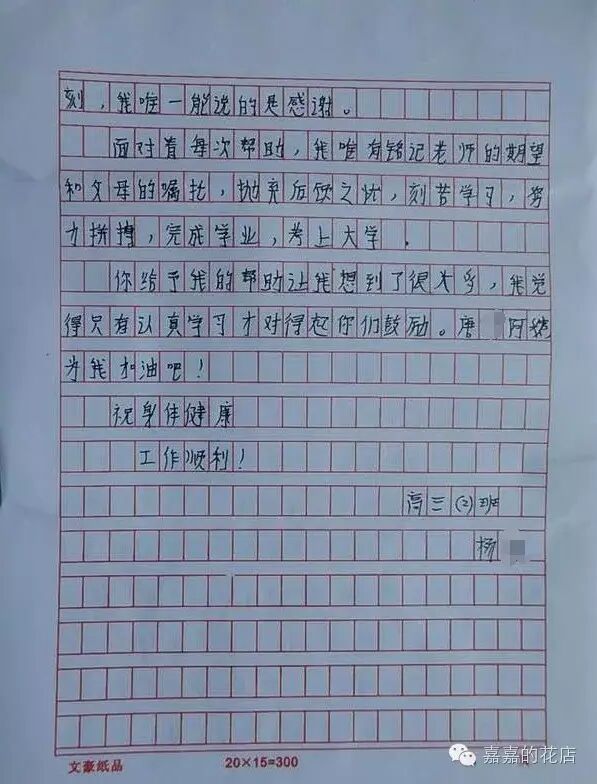 刻，我唯一能说的是感谢。
面对着每次帮助，我唯有铭记老师的期望
和父母的嘱托，抛弃后顾之忧，刻苦学习，努
力拼搏，完成学业，考上大学．
你给予我的帮助让我想到了很多，我觉
得只有认真学习才对得起你们鼓励。唐 阿姨
为我加油吧！
祝身体健康
工作顺利！
高三（2）班
杨
文豪纸品 20×15=300
嘉嘉的花店